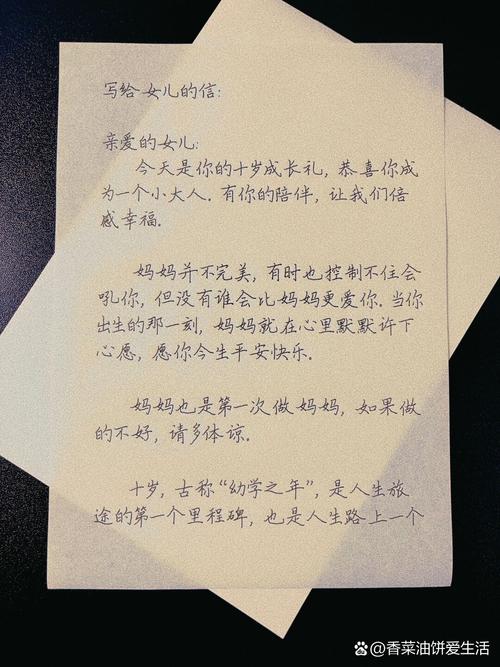 写给女儿的信:
亲爱的女儿:
今天是你的十岁成长礼,恭喜你成
为一个小大人.有你的陪伴,让我们倍
感幸福.
妈妈并不完美,有时也控制不住会
吼你,但没有谁会比妈妈更爱你.当你
出生的那一刻,妈妈就在心里默默许下
心愿,愿你今生平安快乐.
妈妈也是第一次做妈妈,如果做
的不好,请多体谅.
十岁,古称“幼学之年”,是人生旅
途的第一个里程碑,也是人生路上一个
@香菜油饼爱生活